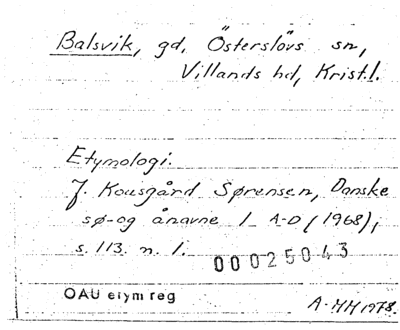 Balsvik, gd, Österslövs sn,
Villands hd, Krist.l.
Etymologi.
J. Kousgård Sørensen, Danske
sø- og ånavne 1 A-D (1968),
s. 113. n. 1.
00025043
OAU etym reg
A-MH 1978.